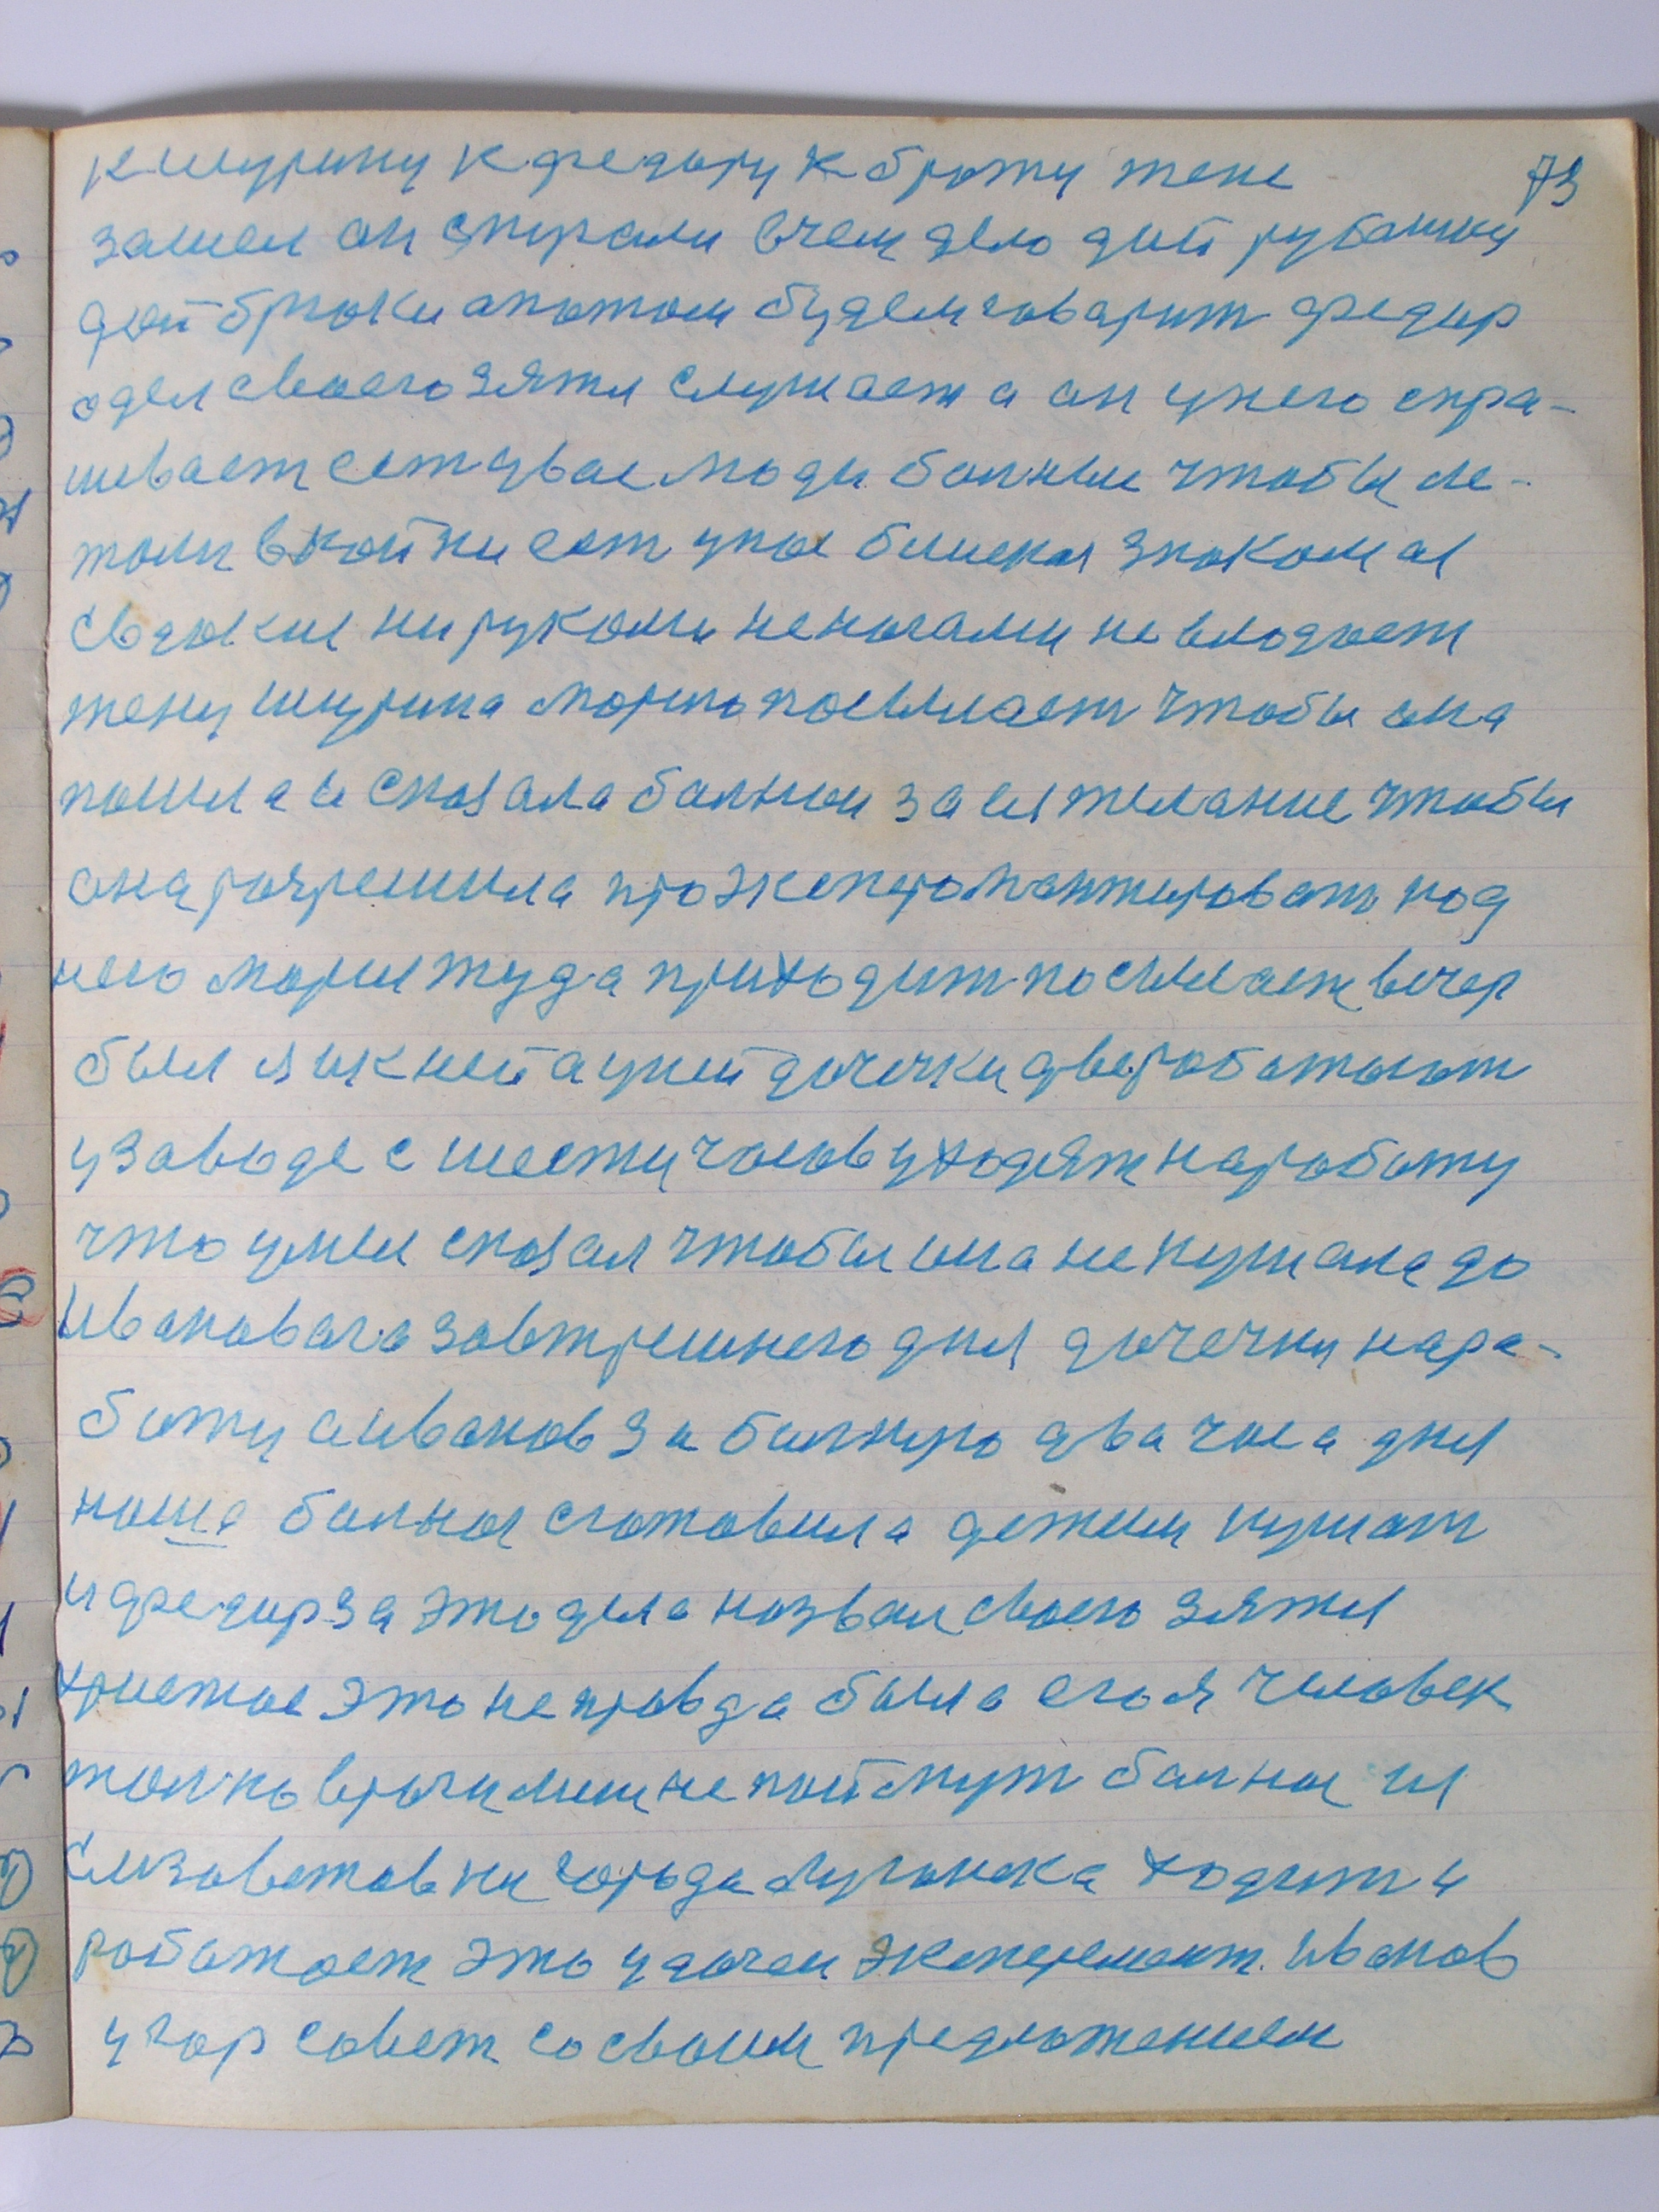 к шурину к федору к брату жене 73
зашел он спирали вчем дело дай рубашку
дай брюки апотом будем говарит федир
одел своего зятя слушает а он унего спра-
шивает естцвас люди болные чтобы ле-
жали вкойки ест унас блиская знакомая
свдокия ни рукоми неногами не владает
жену шурина Марию посылает чтобы она
пошла и сказала болнои за ея желание чтобы
она разрешила проэксперементировать над
нею Мария туда приходит посылает вечер
был я и кней ауней дочечки две работают
узаводе с шести часов уходят наработу
что умея сказал чтобы она не кушала до
Ивановага завтрешнего дня дочечки нара-
боту аиванов за болную два часа дня
наша болная сготовила детям кушат
и федир за это дела назвал своего зятя
христос это неправда была его я человек
толко врачи меня не поймут болная ия
Елизоветовки города Луганска ходит и
работает это удочен эксперемент. Иванов
угор совет со своим предложением